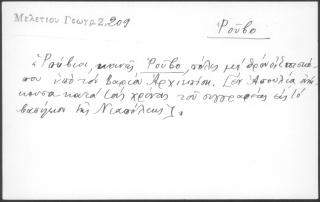 Μελετίου Γεωγρ 2,209
Ρούβο
"Ρούβιοι, κοινῶς Ρούβο, πόλις μὲ θρόνον ἐπισκό-
που ὑπὸ τὸν Βαρίου Ἀρχιεπίσκ. [ἐν Ἀπουλίᾳ ἀνή-
κουσα κατὰ τοὺς χρόνους τοῦ συγγραφέως εἰς τὸ
βασίλειον τῆς Νεαπόλεως].